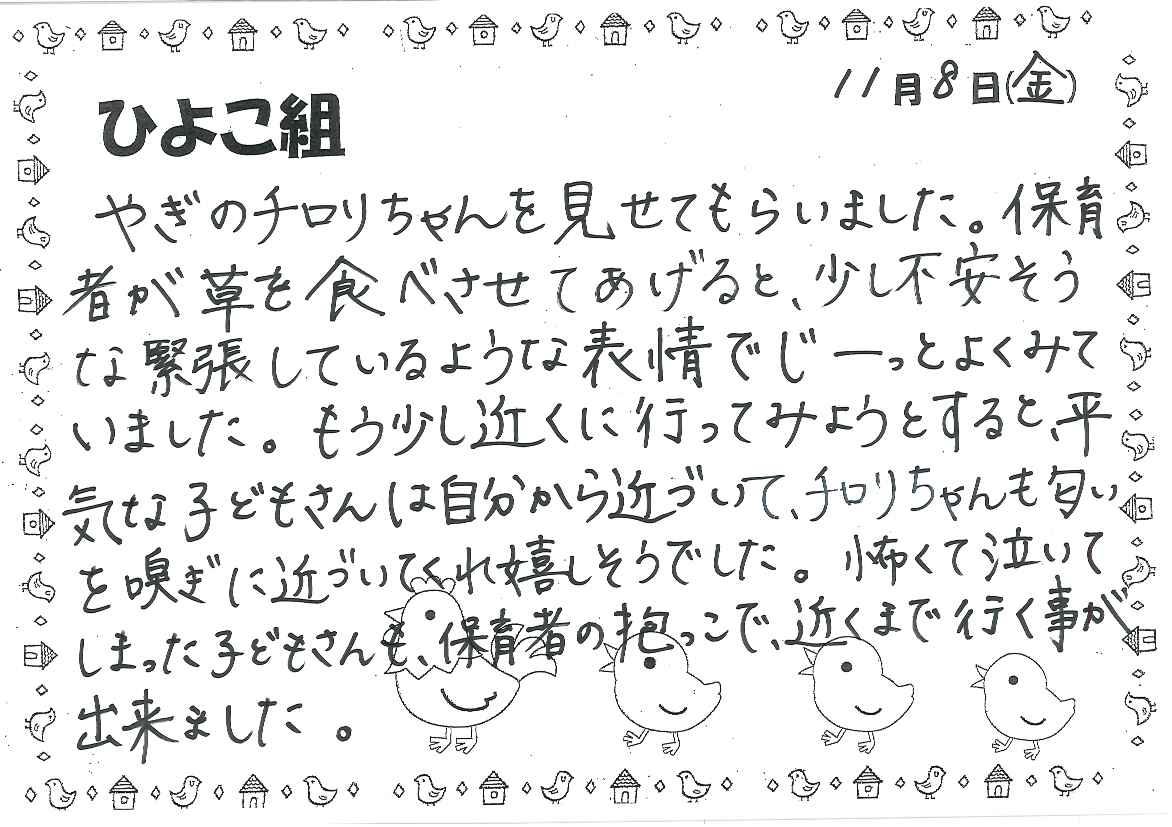 11月8日(金)
ひよこ組
やぎのチロリちゃんを見せてもらいました。保育
者が草を食べさせてあげると、少し不安そう
な緊張しているような表情でじーっとよくみて
いました。もう少し近くに行ってみようとすると、平
気な子どもさんは自分から近づいて、チロリちゃんも匂い
を嗅ぎに近づいてくれ嬉しそうでした。怖くて泣いて
しまった子どもさんも、保育者の抱っこで、近くまで行く事が
出来ました。